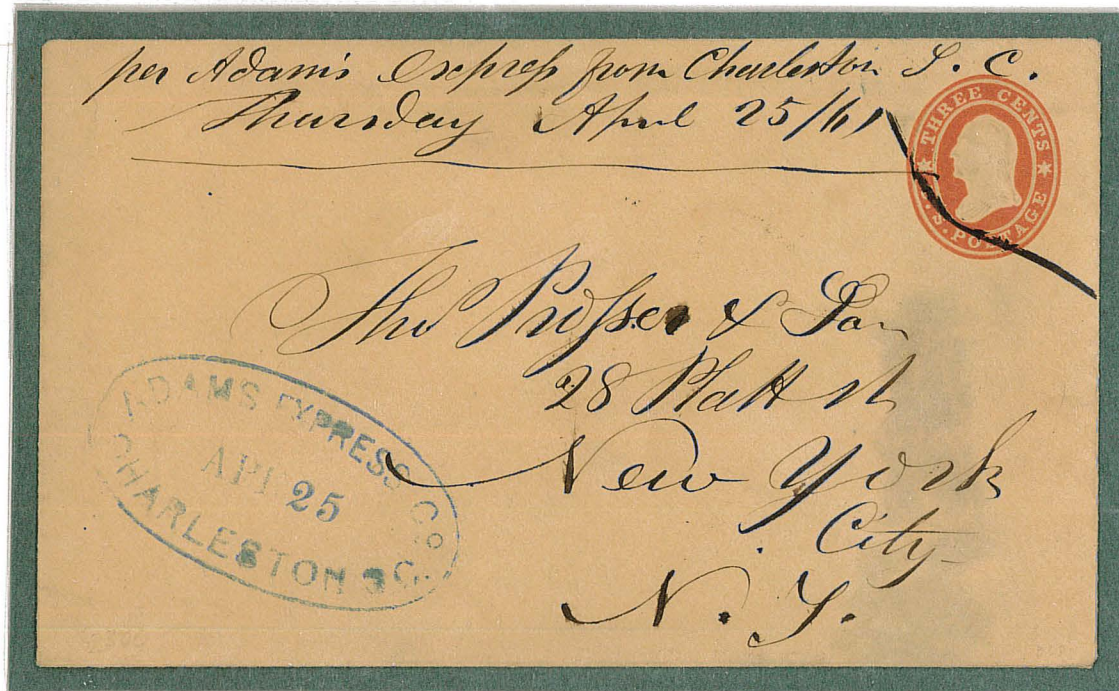 per Adams Express from Charleston S. C.
Thursday April 25/61
THREE CENTS
U.S. POSTAGE
Tho Prosser & Son
28 Platt st
New York
City
N. Y.
ADAMS EXPRESS CO.
APR 25
CHARLESTON S C.